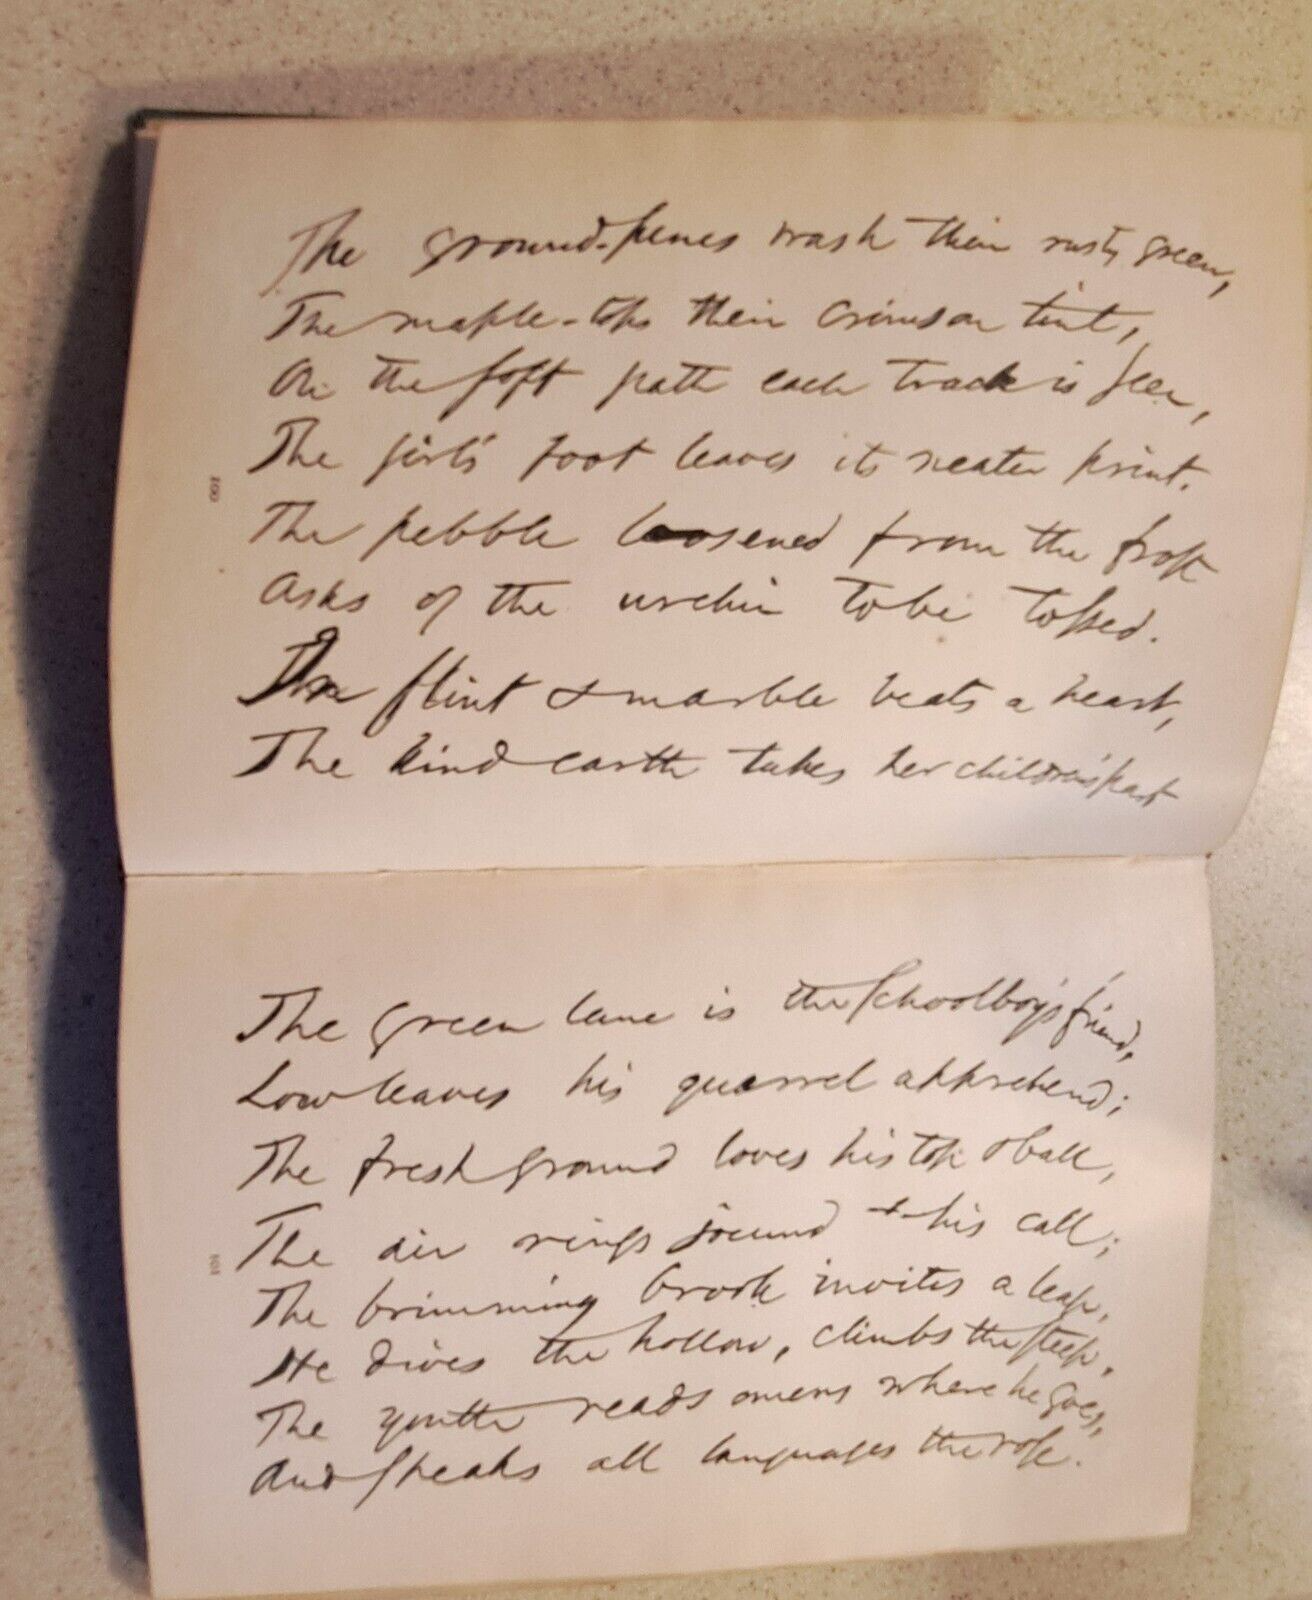 The ground-pines wash their rusty green,
The maple-tops their crimson tint,
On the soft path each track is seen,
The girl's foot leaves its neater print.
The pebble loosened from the frost
Asks of the urchin to be tossed.
In flint & marble beats a heart,
The kind earth takes her children's part
100
The green lane is the schoolboy's friend,
Low leaves his quarrel apprehend;
The fresh ground loves his top & ball,
The air rings jocund to his call;
The brimming brook invites a leap,
He dives the hollow, climbs the steep,
The youth reads omens where he goes,
And speaks all languages the rose.
101